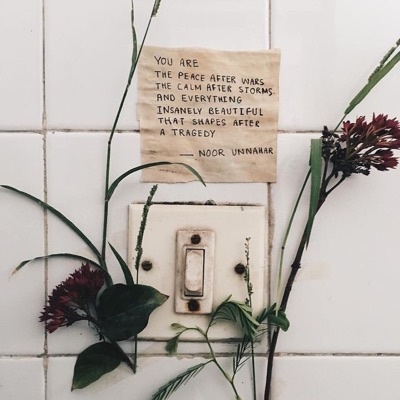 YOU ARE
THE PEACE AFTER WARS
THE CALM AFTER STORMS.
AND EVERYTHING
INSANELY BEAUTIFUL
THAT SHAPES AFTER
A TRAGEDY
— NOOR UNNAHAR